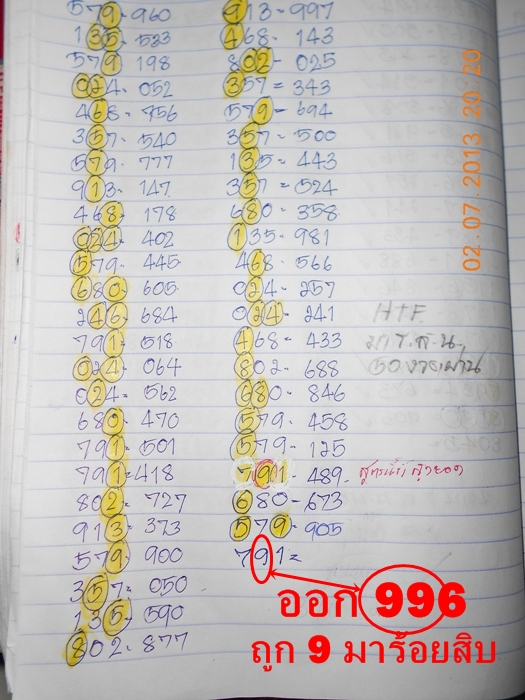 579-960
135-533
579 198
024=052
468-756
357-540
579-777
913-147
468-178
024-402
579-445
680-605
246-684
791-518
024-064
024=562
680-470
791-501
791=418
802-727
913=373
579-900
357=050
135-590
802-877
913-997
468-143
802-025
357=343
579=694
357-500
135=443
357=524
680-358
135-981
468-566
024-257
024-241
468-433
802-688
680-846
579-458
579-125
791-489
680-673
579-905
791=
02.07.2013 20 20
HTF
ออก 996
ถูก 9 มาร้อยสิบ